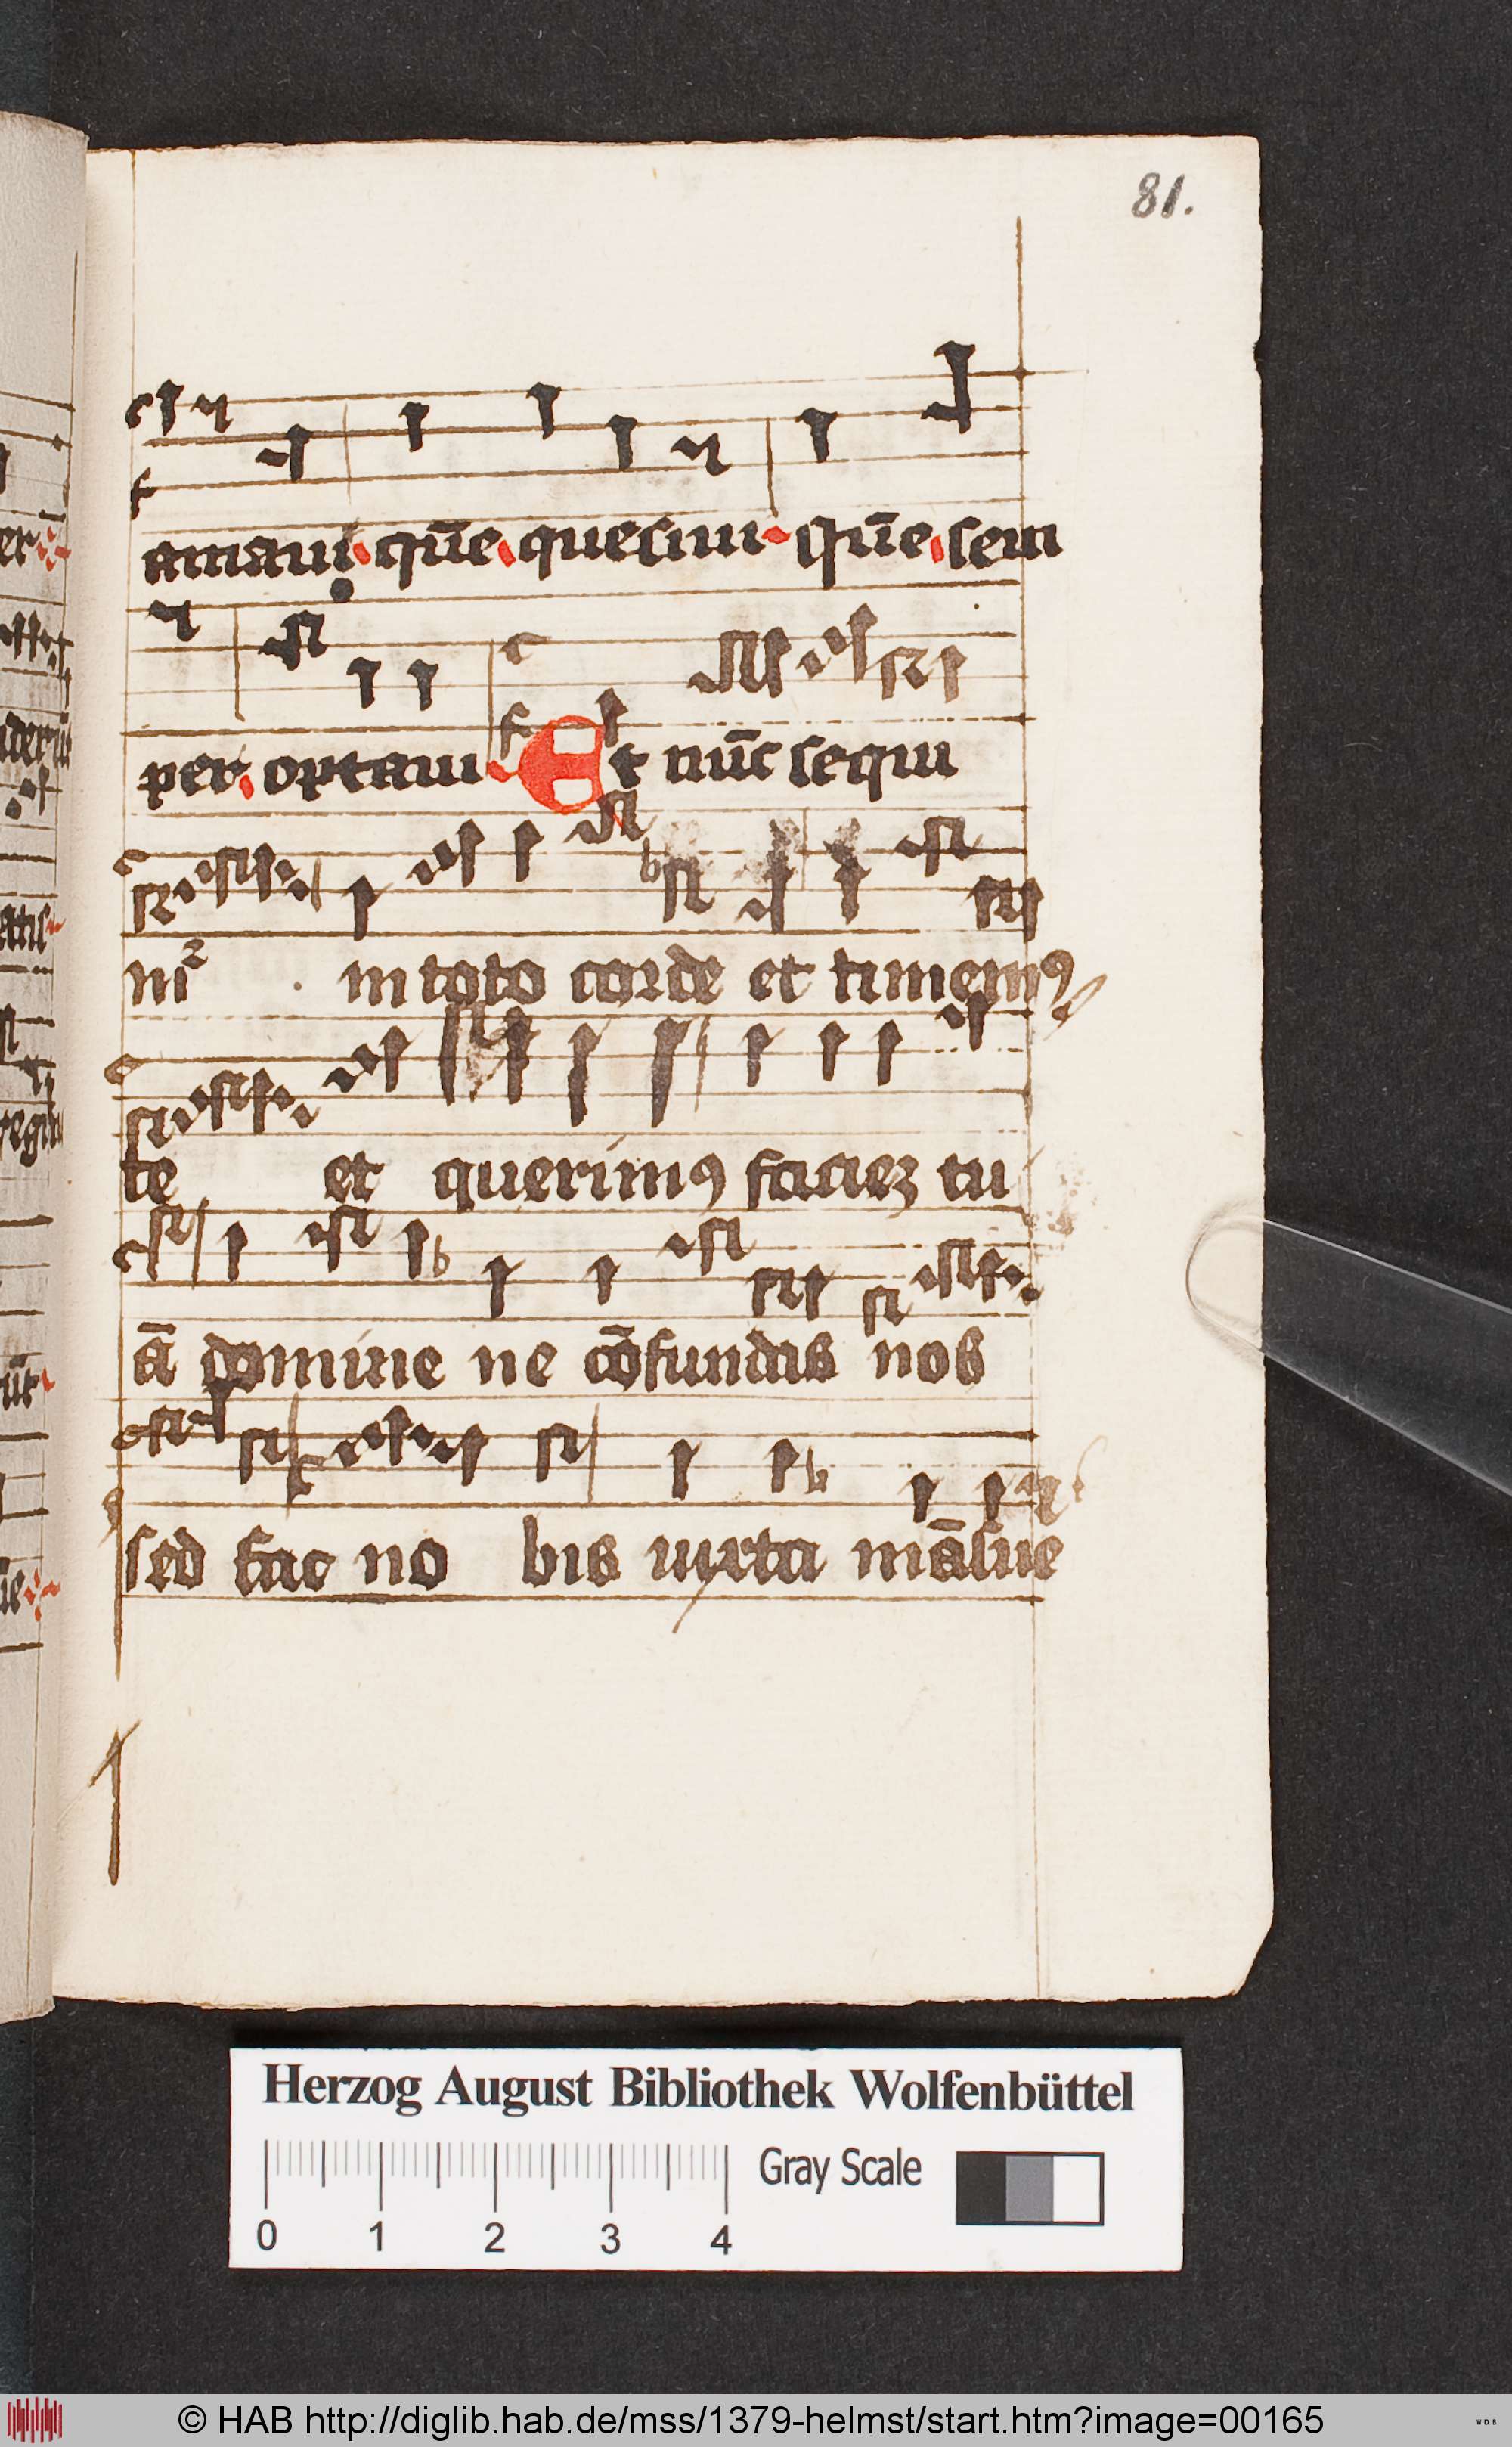 81.
amaui quē quesiui quē sem
per optaui Et nūc sequi
mᷣ in toto corde et timemꝰ
te et querimꝰ faciez tu
ā domine ne cōfundas nos
sed fac no bis iuxta māsue
Herzog August Bibliothek Wolfenbüttel
0 1 2 3 4 Gray Scale
© HAB http://diglib.hab.de/mss/1379-helmst/start.htm?image=00165